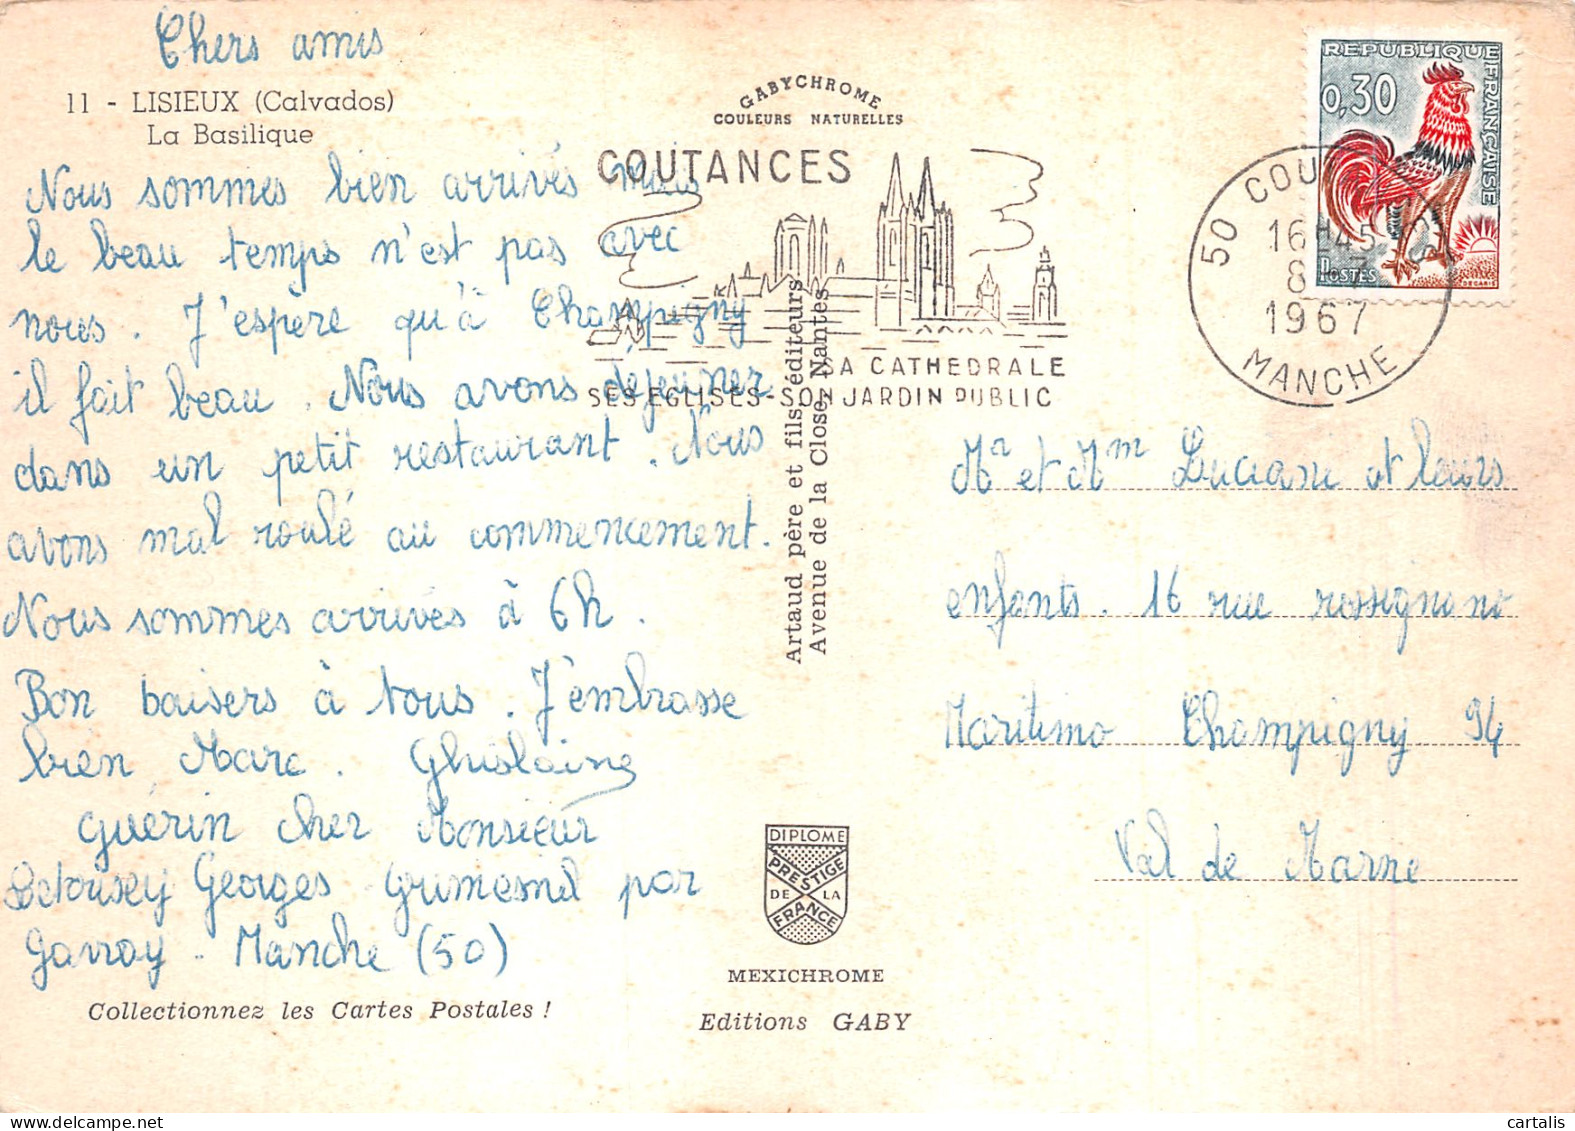 Chers amis
11 - LISIEUX (Calvados)
La Basilique
Nous sommes bien arrivés mais
le beau temps n'est pas avec
nous. J'espère qu'à Champigny
il fait beau. Nous avons déjeuner
dans un petit restaurant. Nous
avons mal roulé au commencement.
Nous sommes arrivés à 6h.
Bon baisers à tous. J'embrasse
bien Marc. Ghislaine
guérin cher Monsieur
Georges Grimesnil par
Gavray. Manche (50)
Collectionnez les Cartes Postales !
GABYCHROME
COULEURS NATURELLES
COUTANCES
SA CATHEDRALE
SES EGLISES-SON JARDIN PUBLIC
Artaud père et fils, éditeurs
Avenue de la Close, Nantes
DIPLOME
PRESTIGE
DE LA
FRANCE
MEXICHROME
Editions GABY
REPUBLIQUE FRANÇAISE
0,30
POSTES
DECARIS
50 COU
16H45
8-7
1967
MANCHE
Mr et Mm Luciani et leurs
enfants. 16 rue rossignano
Maritimo Champigny 94
Val de Marne
cartalis